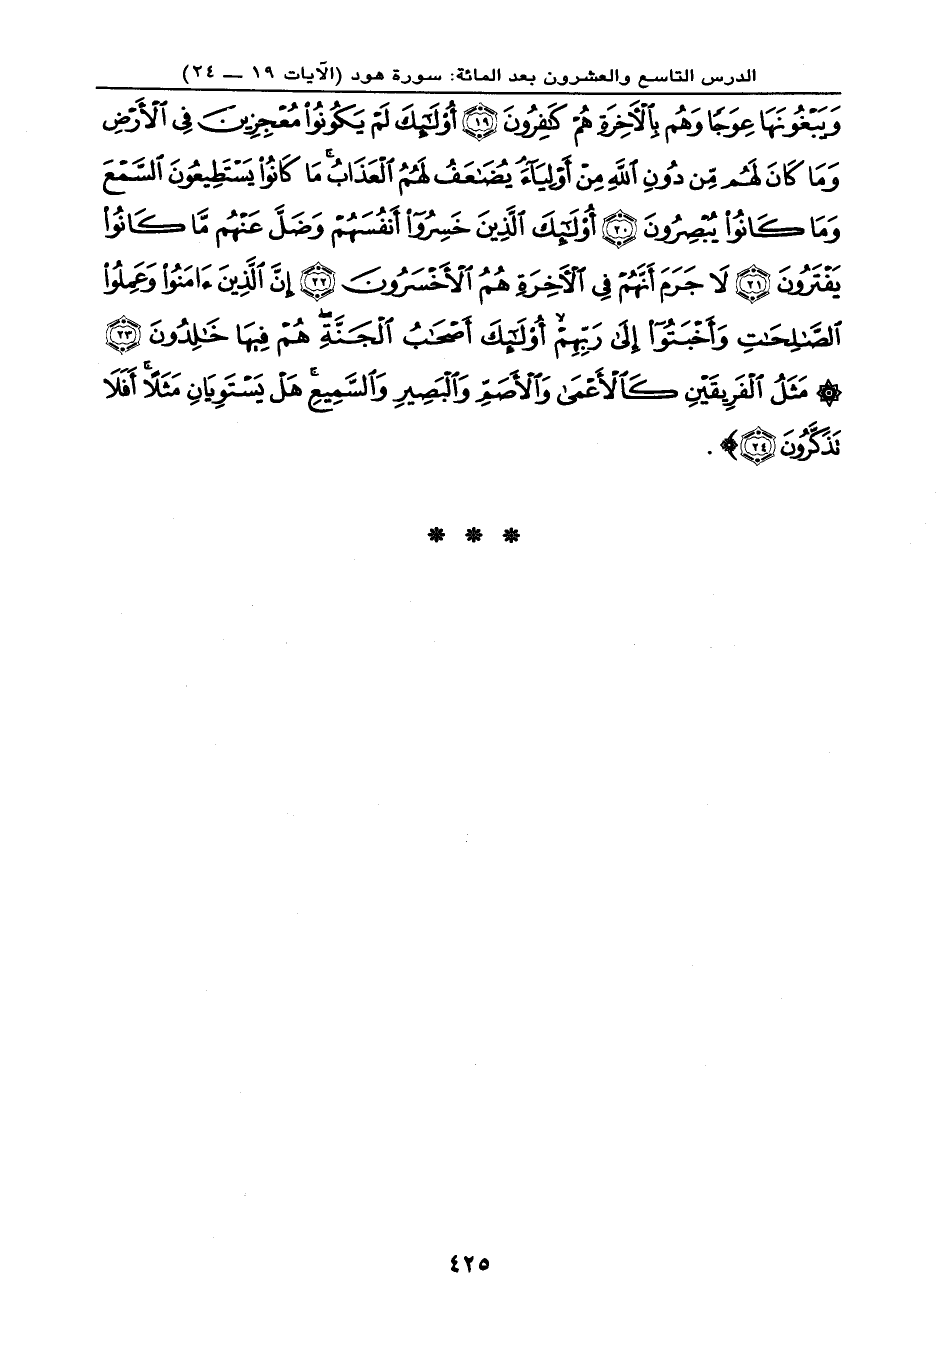 الدرس التاسع والعشرون بعد المائة: سورة هود (الآيات ١٩ — ٢٤)
وَيَبْغُونَهَا عِوَجًا وَهُم بِٱلْأَخِرَةِ هُمْ كَٰفِرُونَ ﴿١٩﴾ أُوْلَٰٓئِكَ لَمْ يَكُونُواْ مُعْجِزِينَ فِى ٱلْأَرْضِ
وَمَا كَانَ لَهُم مِّن دُونِ ٱللَّهِ مِنْ أَوْلِيَآءَۘ يُضَٰعَفُ لَهُمُ ٱلْعَذَابُۚ مَا كَانُواْ يَسْتَطِيعُونَ ٱلسَّمْعَ
وَمَا كَانُواْ يُبْصِرُونَ ﴿٢٠﴾ أُوْلَٰٓئِكَ ٱلَّذِينَ خَسِرُوٓاْ أَنفُسَهُمْ وَضَلَّ عَنْهُم مَّا كَانُواْ
يَفْتَرُونَ ﴿٢١﴾ لَا جَرَمَ أَنَّهُمْ فِى ٱلْأَخِرَةِ هُمُ ٱلْأَخْسَرُونَ ﴿٢٢﴾ إِنَّ ٱلَّذِينَ ءَامَنُواْ وَعَمِلُواْ
ٱلصَّٰلِحَٰتِ وَأَخْبَتُوٓاْ إِلَىٰ رَبِّهِمْۙ أُوْلَٰٓئِكَ أَصْحَٰبُ ٱلْجَنَّةِۖ هُمْ فِيهَا خَٰلِدُونَ ﴿٢٣﴾
۞ مَثَلُ ٱلْفَرِيقَيْنِ كَٱلْأَعْمَىٰ وَٱلْأَصَمِّ وَٱلْبَصِيرِ وَٱلسَّمِيعِۚ هَلْ يَسْتَوِيَانِ مَثَلًاۚ أَفَلَا
نَذَكَّرُونَ ﴿٢٤﴾ ﴾ .
* * *
٤٢٥